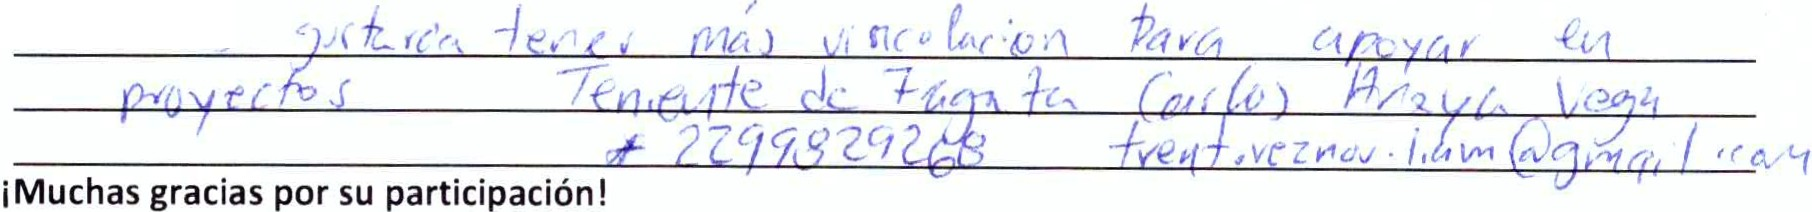 gustaria tener más vincolacion para apoyar en
proyectos Teniente de Fragata Carlos Anaya Vega
# 2299829268 trent.veznov.liam@gmail.com
¡Muchas gracias por su participación!